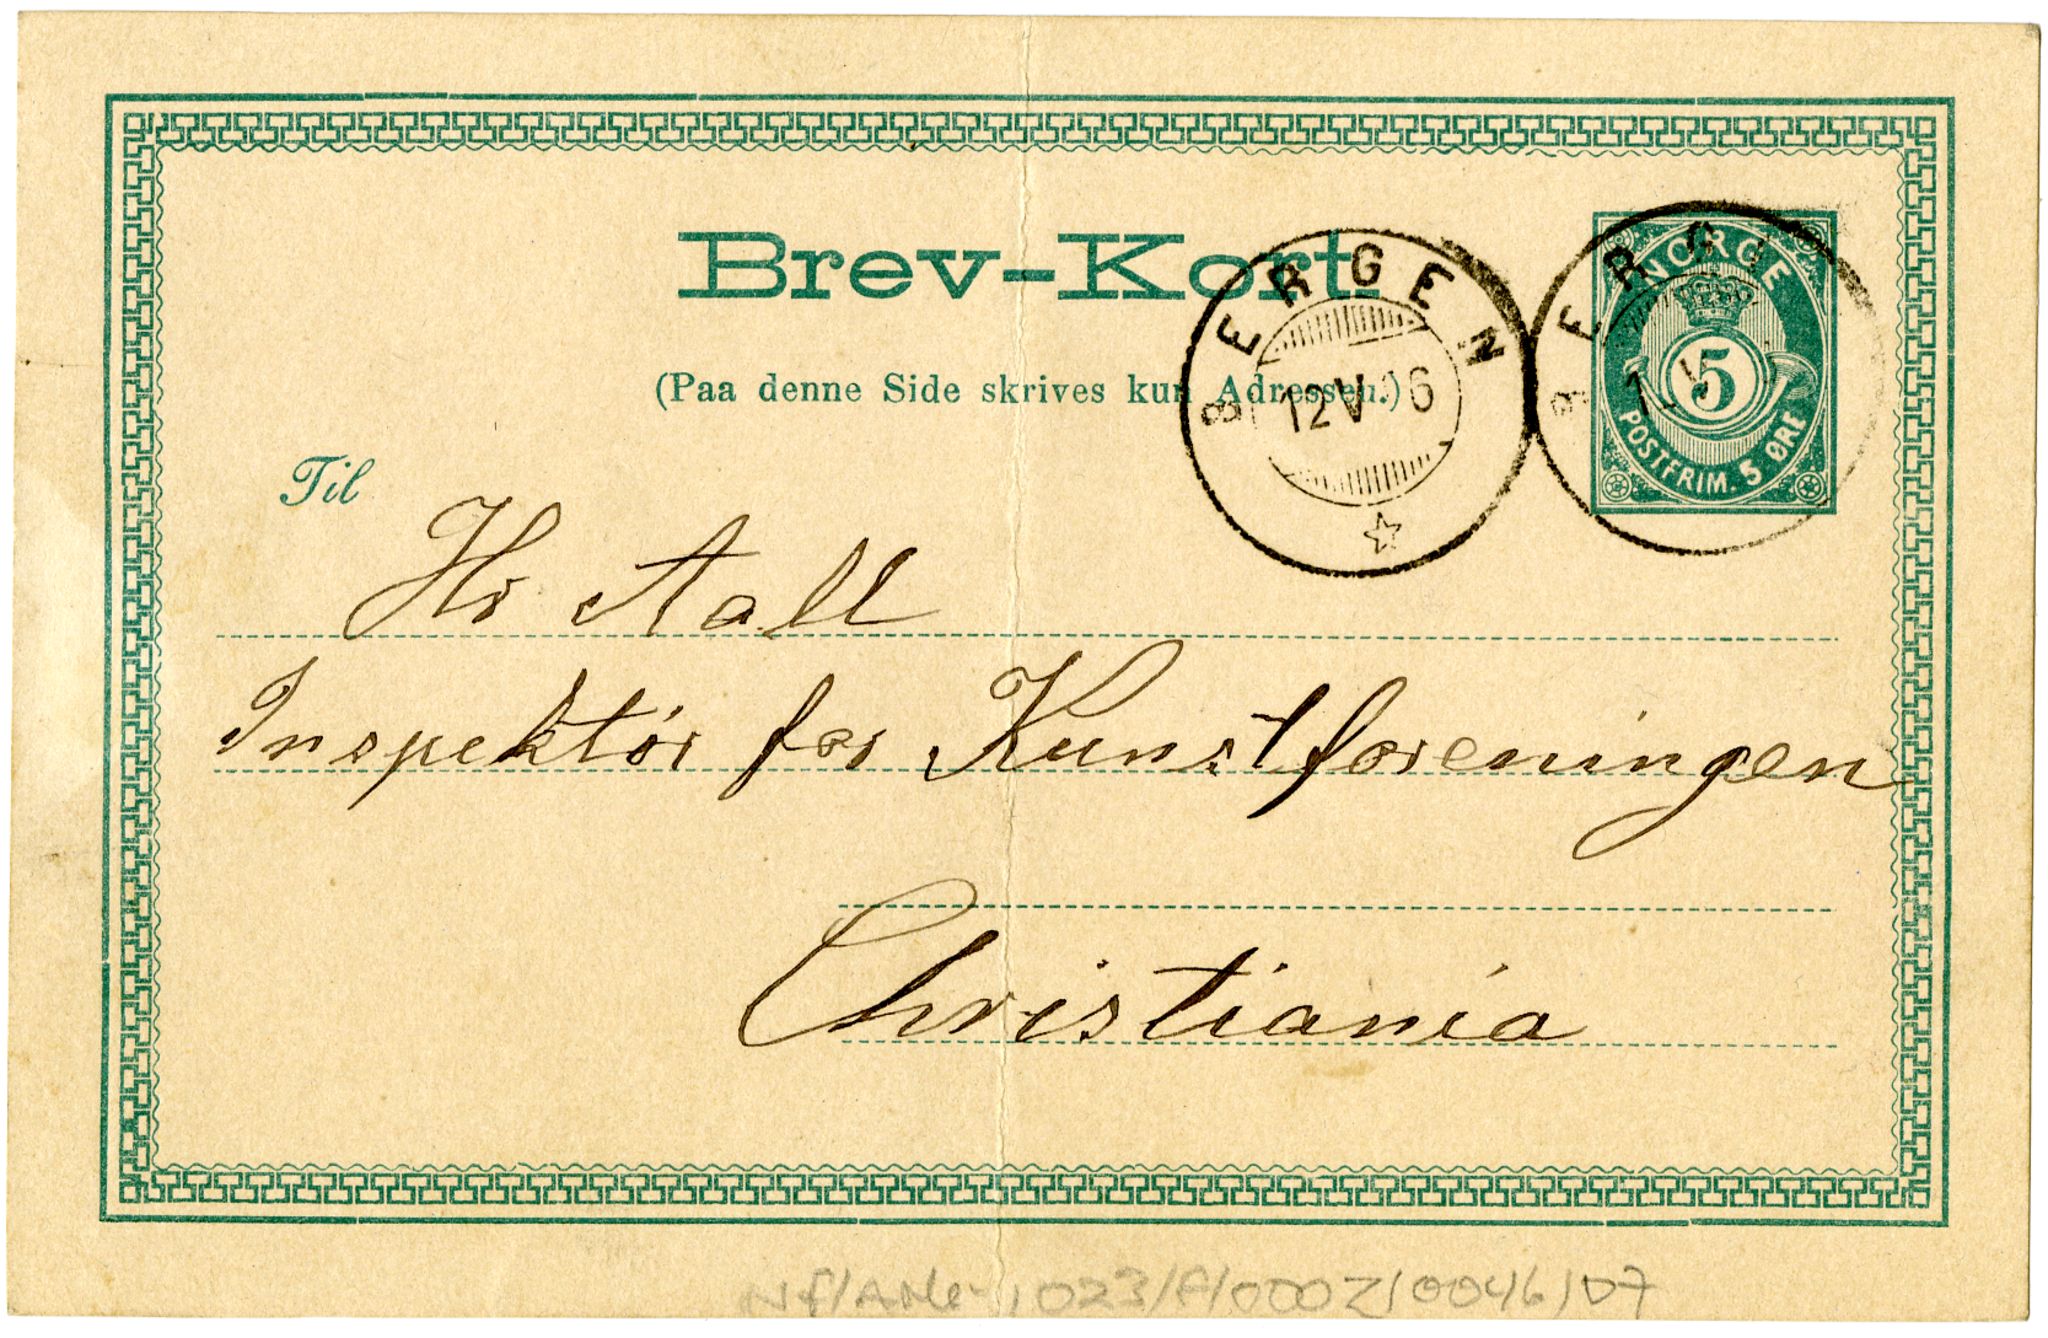 Brev-Kort.
(Paa denne Side skrives kun Adressen.)
BERGEN
12 V 6
BERG
NORGE
5
POSTFRIM. 5 ØRE
Til
Hr Aall
Inspektör for Kunstforeningen
Christiania